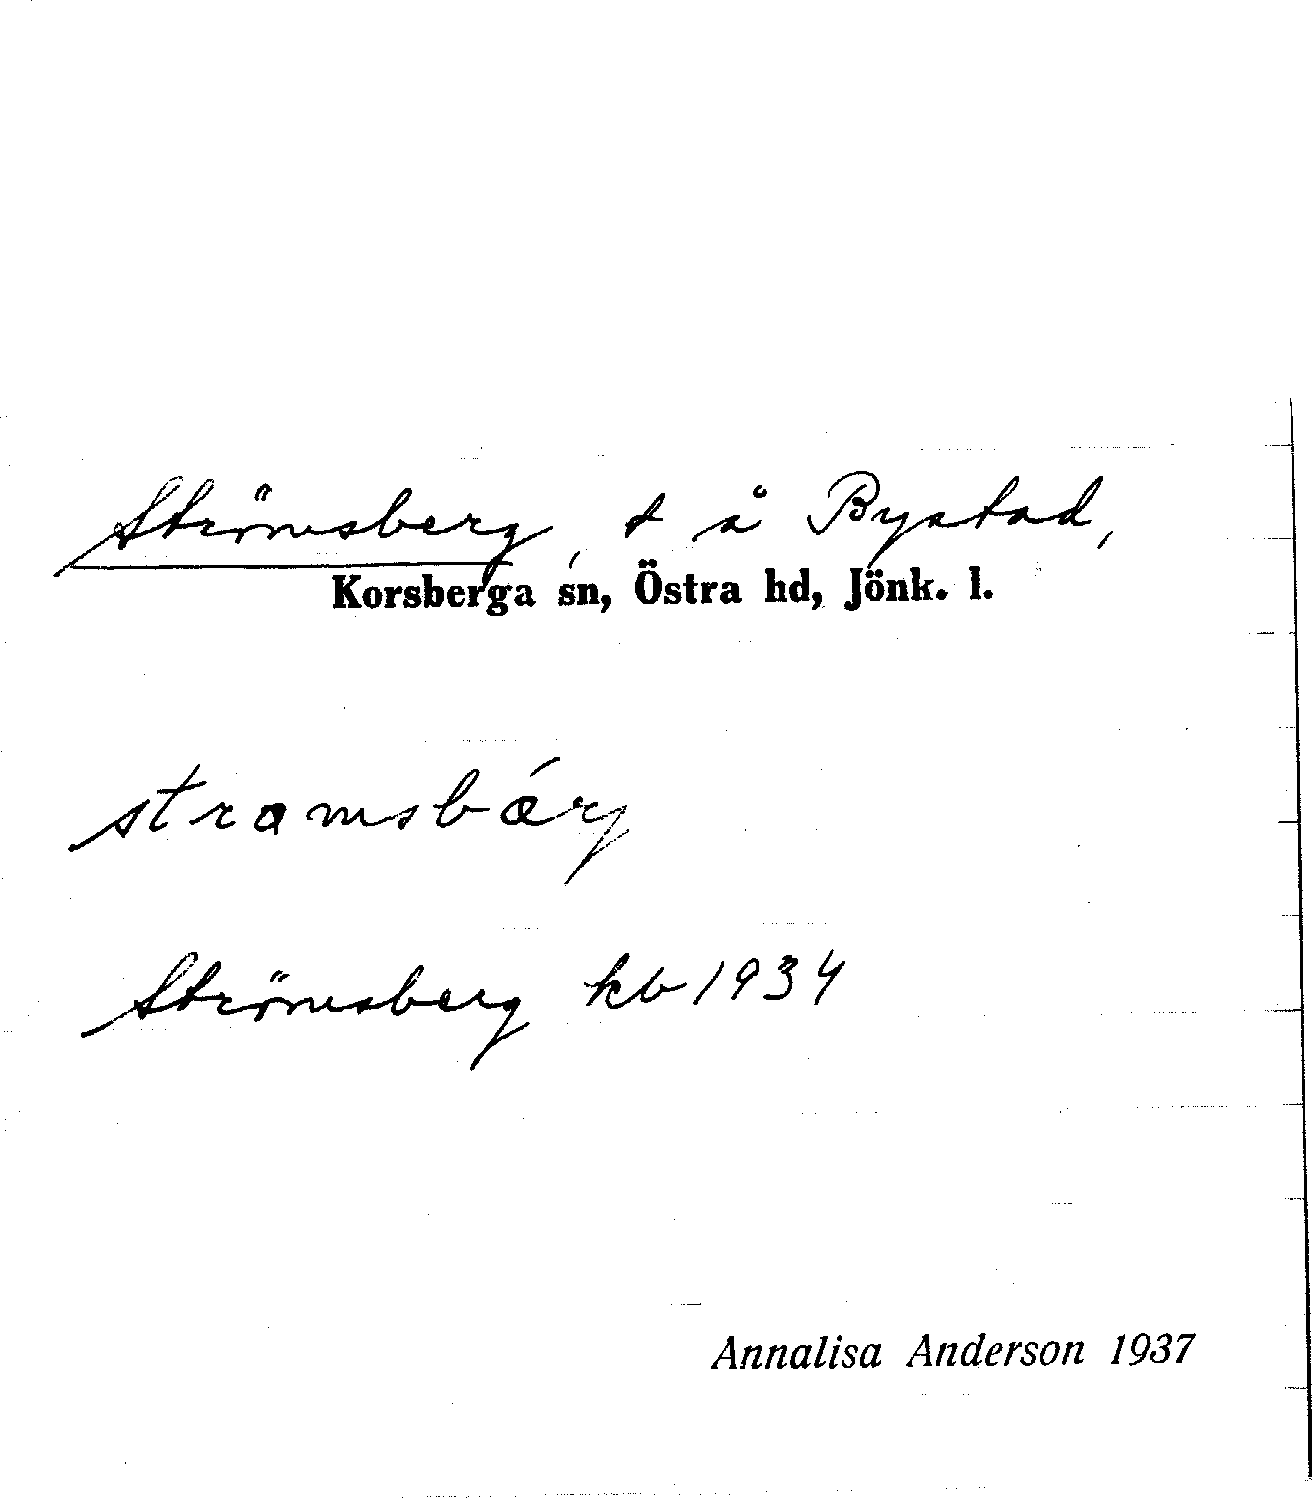 Strömsberg, t å Bystad,
Korsberga sn, Östra hd, Jönk. l.
stramsbǽrj
Strömsberg kb 1934
Annalisa Anderson 1937